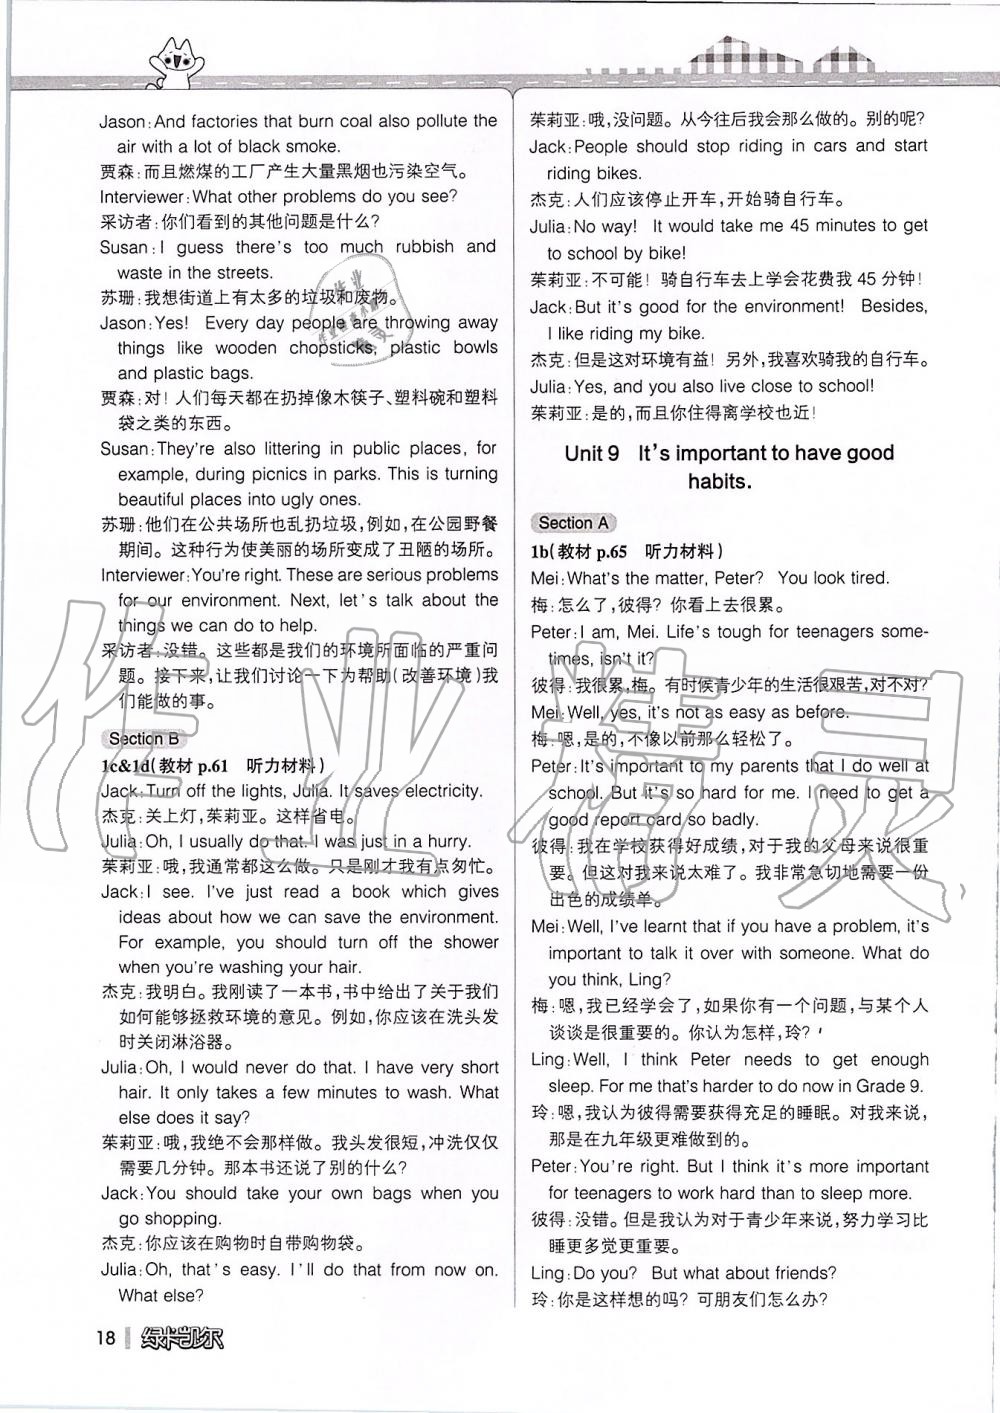 Jason:And factories that burn coal also pollute the
air with a lot of black smoke.
贾森:而且燃煤的工厂产生大量黑烟也污染空气。
Interviewer:What other problems do you see?
采访者:你们看到的其他问题是什么?
Susan:I guess there's too much rubbish and
waste in the streets.
苏珊:我想街道上有太多的垃圾和废物。
Jason:Yes! Every day people are throwing away
things like wooden chopsticks, plastic bowls
and plastic bags.
贾森:对!人们每天都在扔掉像木筷子、塑料碗和塑料
袋之类的东西。
Susan:They're also littering in public places, for
example, during picnics in parks. This is turning
beautiful places into ugly ones.
苏珊:他们在公共场所也乱扔垃圾,例如,在公园野餐
期间。这种行为使美丽的场所变成了丑陋的场所。
Interviewer:You're right. These are serious problems
for our environment. Next, let's talk about the
things we can do to help.
采访者:没错。这些都是我们的环境所面临的严重问
题。接下来,让我们讨论一下为帮助(改善环境)我
们能做的事。
Section B
1c&1d(教材 p.61 听力材料)
Jack:Turn off the lights, Julia. It saves electricity.
杰克:关上灯,茱莉亚。这样省电。
Julia:Oh, I usually do that. I was just in a hurry.
茱莉亚:哦,我通常都这么做。只是刚才我有点匆忙。
Jack:I see. I've just read a book which gives
ideas about how we can save the environment.
For example, you should turn off the shower
when you're washing your hair.
杰克:我明白。我刚读了一本书,书中给出了关于我们
如何能够拯救环境的意见。例如,你应该在洗头发
时关闭淋浴器。
Julia:Oh, I would never do that. I have very short
hair. It only takes a few minutes to wash. What
else does it say?
茱莉亚:哦,我绝不会那样做。我头发很短,冲洗仅仅
需要几分钟。那本书还说了别的什么?
Jack:You should take your own bags when you
go shopping.
杰克:你应该在购物时自带购物袋。
Julia:Oh, that's easy. I'll do that from now on.
What else?
18 绿卡凯尔
茱莉亚:哦,没问题。从今往后我会那么做的。别的呢?
Jack:People should stop riding in cars and start
riding bikes.
杰克:人们应该停止开车,开始骑自行车。
Julia:No way! It would take me 45 minutes to get
to school by bike!
茱莉亚:不可能!骑自行车去上学会花费我 45 分钟!
Jack:But it's good for the environment! Besides,
I like riding my bike.
杰克:但是这对环境有益!另外,我喜欢骑我的自行车。
Julia:Yes, and you also live close to school!
茱莉亚:是的,而且你住得离学校也近!
Unit 9 It's important to have good
habits.
Section A
1b(教材 p.65 听力材料)
Mei:What's the matter, Peter? You look tired.
梅:怎么了,彼得?你看上去很累。
Peter:I am, Mei. Life's tough for teenagers some-
times, isn't it?
彼得:我很累,梅。有时候青少年的生活很艰苦,对不对?
Mei:Well, yes, it's not as easy as before.
梅:嗯,是的,不像以前那么轻松了。
Peter:It's important to my parents that I do well at
school. But it's so hard for me. I need to get a
good report card so badly.
彼得:我在学校获得好成绩,对于我的父母来说很重
要。但这对我来说太难了。我非常急切地需要一份
出色的成绩单。
Mei:Well, I've learnt that if you have a problem, it's
important to talk it over with someone. What do
you think, Ling?
梅:嗯,我已经学会了,如果你有一个问题,与某个人
谈谈是很重要的。你认为怎样,玲?
Ling:Well, I think Peter needs to get enough
sleep. For me that's harder to do now in Grade 9.
玲:嗯,我认为彼得需要获得充足的睡眠。对我来说,
那是在九年级更难做到的。
Peter:You're right. But I think it's more important
for teenagers to work hard than to sleep more.
彼得:没错。但是我认为对于青少年来说,努力学习比
睡更多觉更重要。
Ling:Do you? But what about friends?
玲:你是这样想的吗?可朋友们怎么办?
作业精灵